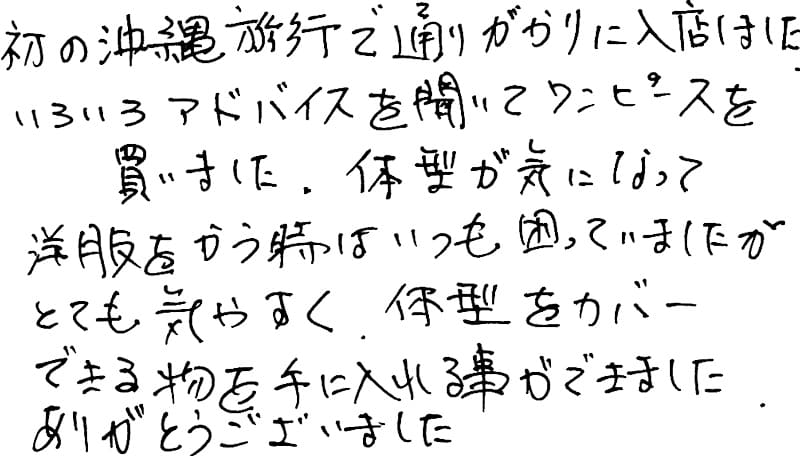 初の沖縄旅行で通りがかりに入店しました
いろいろアドバイスを聞いてワンピースを
買いました。体型が気になって
洋服をかう時はいつも困っていましたが
とても気やすく、体型をカバー
できる物を手に入れる事ができました。
ありがとうございました